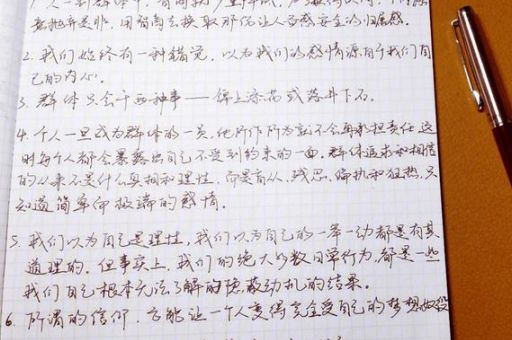 1. 人一到群体中，智商就严重降低，为了获得认同，个体愿意
抛弃是非，用智商去换取那份让人备感安全的归属感。
2. 我们始终有一种错觉，以为我们的感情源自于我们自
己的内心。
3. 群体只会干两种事——锦上添花或落井下石。
4. 个人一旦成为群体的一员，他所作所为就不会再承担责任，这
时每个人都会暴露出自己不受到约束的一面。群体追求和相信
的从来不是什么真相和理性，而是盲从、残忍、偏执和狂热，只
知道简单而极端的感情。
5. 我们以为自己是理性，我们以为自己的一举一动都是有其
道理的。但事实上，我们的绝大多数日常行为，都是一些
我们自己根本无法了解的隐蔽动机的结果。
6. 所谓的信仰，它能让一个人变得完全受自己的梦想奴役